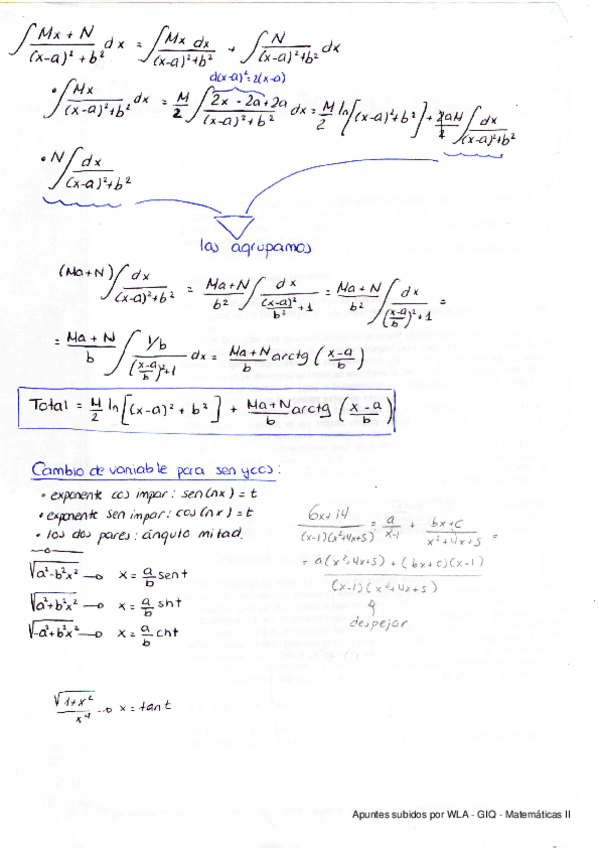 ∫ (Mx + N)/((x-a)² + b²) dx = ∫ (Mx dx)/((x-a)²+b²) + ∫ N/((x-a)²+b²) dx
d(x-a)² = 2(x-a)
• ∫ Mx/((x-a)²+b²) dx = M/2 ∫ (2x - 2a + 2a)/((x-a)²+b²) dx = M/2 ln[(x-a)²+b²] + 2aM/2 ∫ dx/((x-a)²+b²)
• N ∫ dx/((x-a)²+b²)
las agrupamos
(Ma+N) ∫ dx/((x-a)²+b²) = (Ma+N)/b² ∫ dx/((x-a)²/b² + 1) = (Ma+N)/b² ∫ dx/(((x-a)/b)² + 1) =
= (Ma + N)/b ∫ (1/b)/(((x-a)/b)² + 1) dx = (Ma+N)/b arctg ((x-a)/b)
Total = M/2 ln[(x-a)² + b²] + (Ma+N)/b arctg ((x-a)/b)
Cambio de variable para sen y cos:
• exponente cos impar: sen(nx) = t
• exponente sen impar: cos(nx) = t
• los dos pares: ángulo mitad.
√(a²-b²x²) → x = a/b sent
√(a²+b²x²) → x = a/b sht
√(-a²+b²x²) → x = a/b cht
√(1+x²)/x⁴ → x = tan t
(6x+14)/((x-1)(x²+4x+5)) = a/(x-1) + (bx+c)/(x²+4x+5) =
= (a(x²+4x+5) + (bx+c)(x-1))/((x-1)(x²+4x+5))
despejar
Apuntes subidos por WLA - GIQ - Matemáticas II